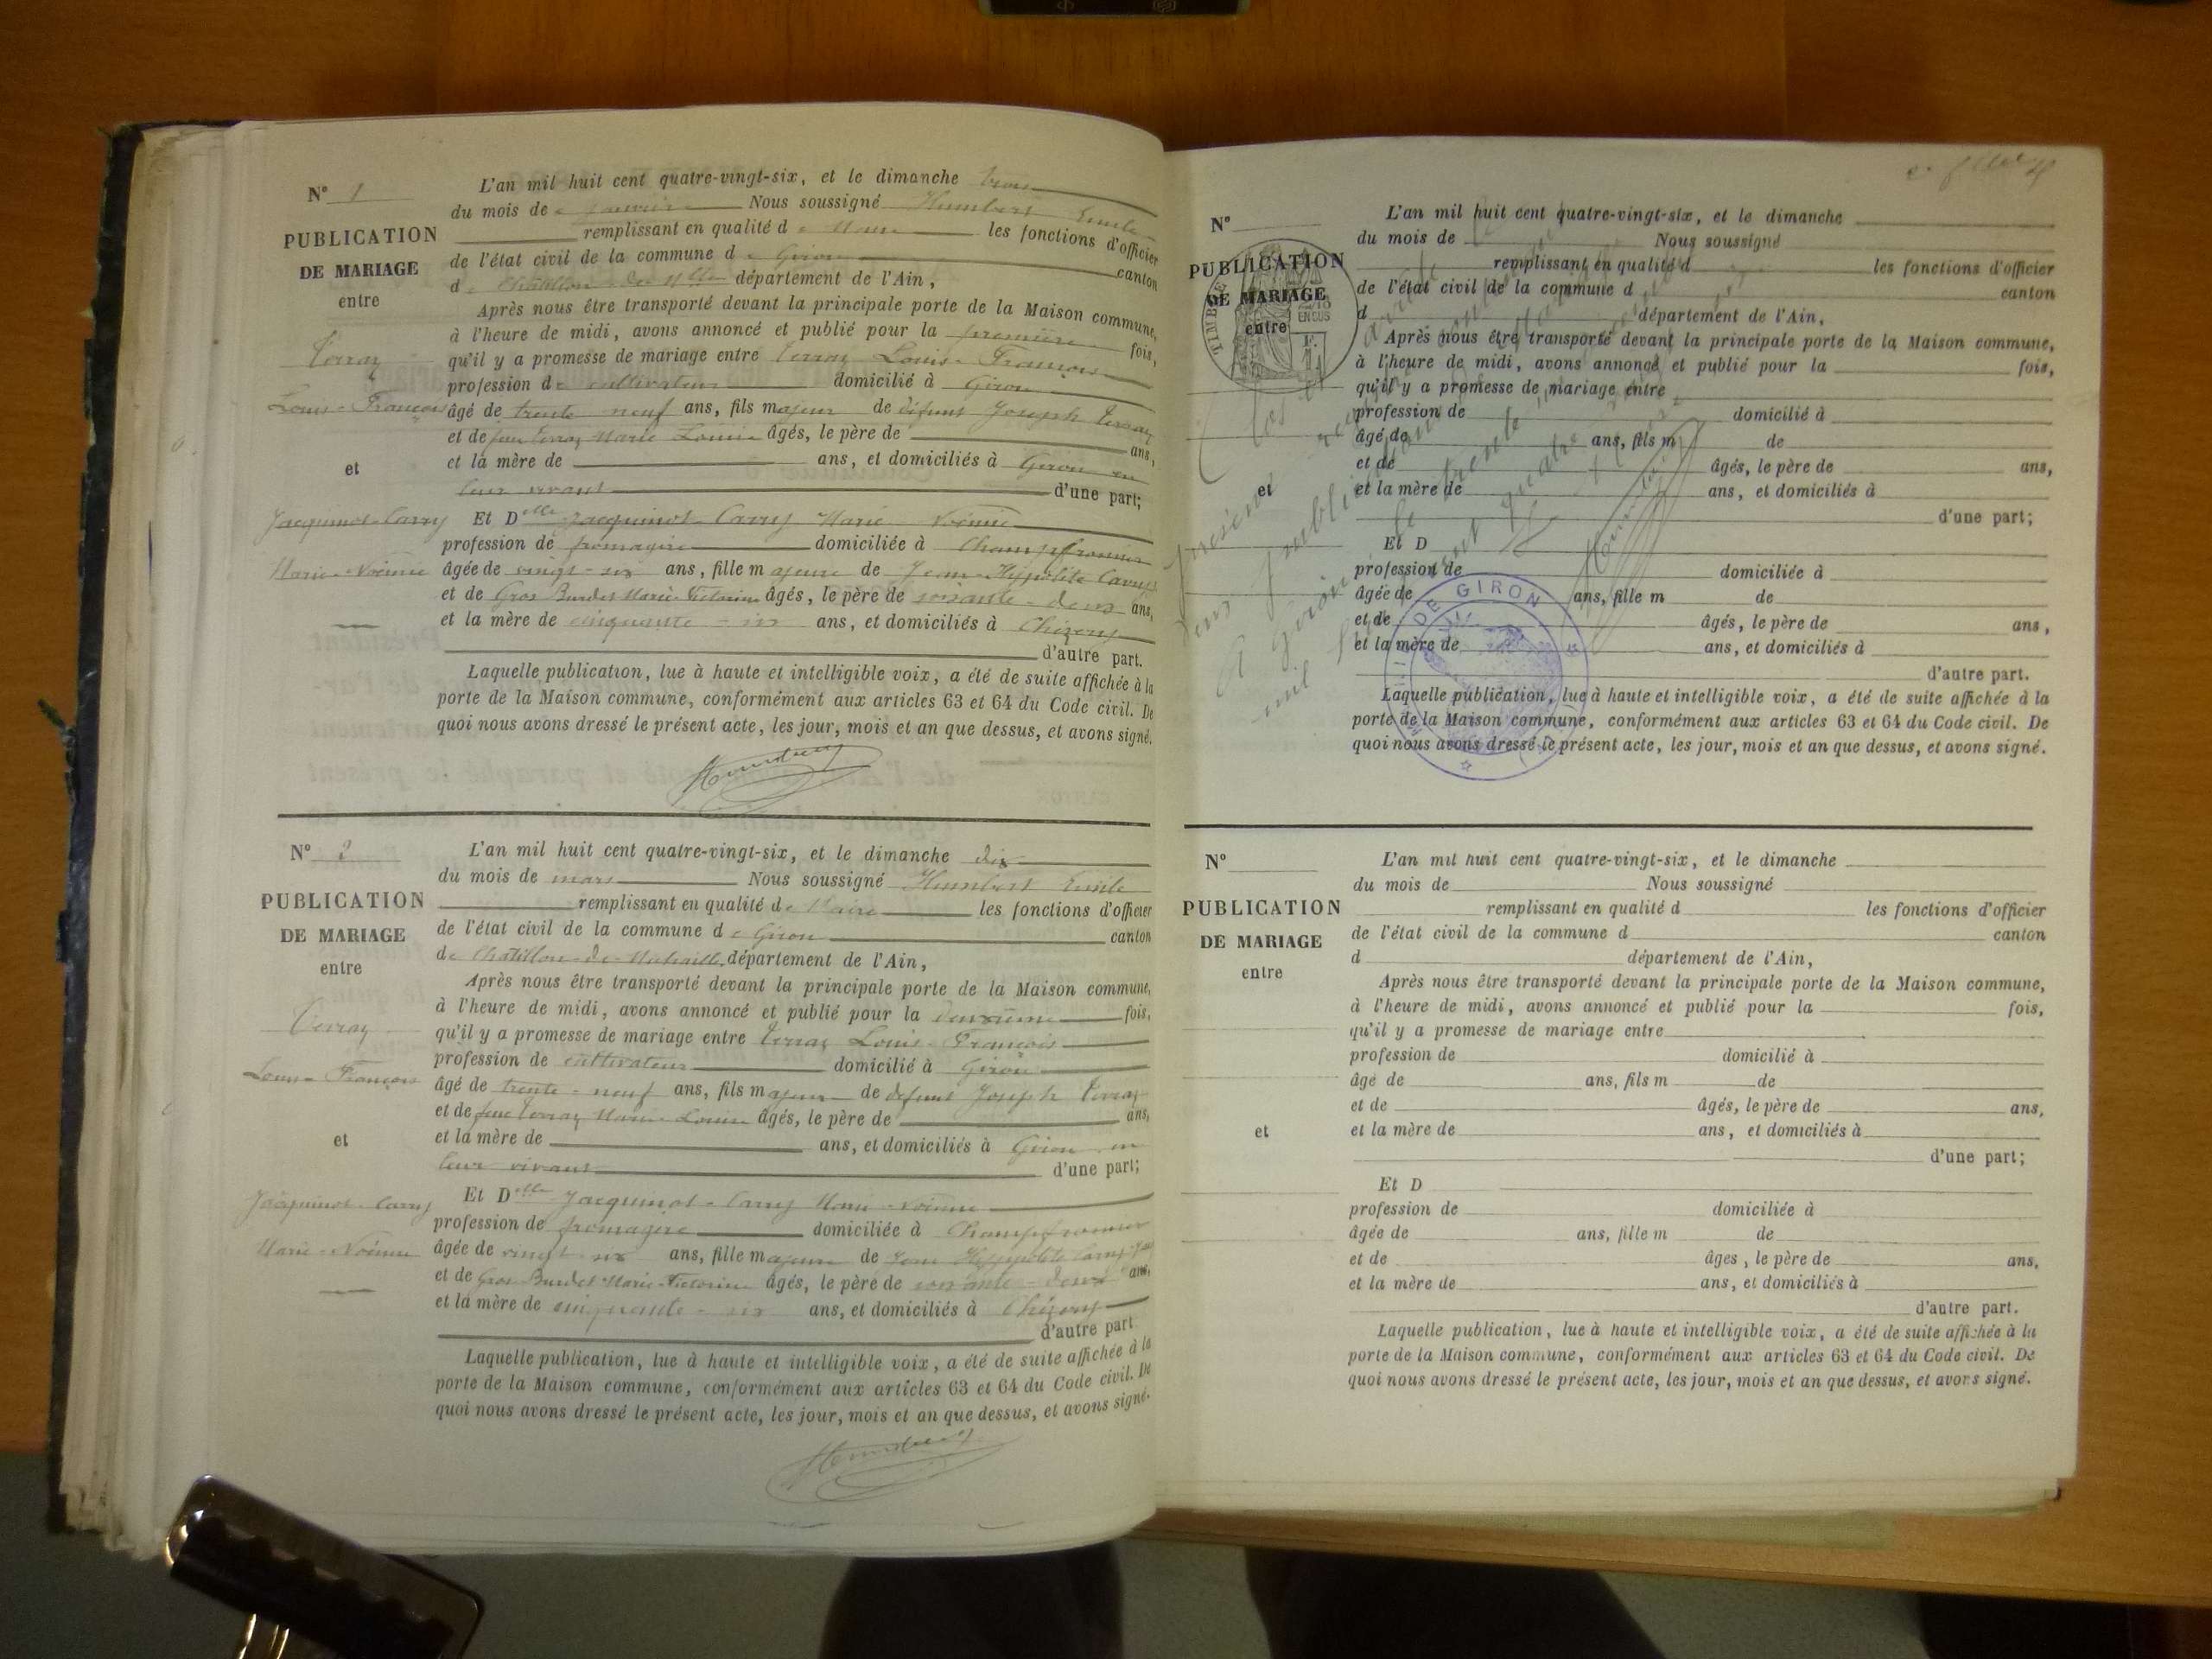 N° 1
PUBLICATION
DE MARIAGE
entre
Verray
Louis-François
et
Jacquinod-Carry
Marie-Noémie
L'an mil huit cent quatre-vingt-six, et le dimanche trois
du mois de janvier Nous soussigné Humbert Emile
remplissant en qualité de Maire les fonctions d'officier
de l'état civil de la commune de Giron canton
de Châtillon-de-Mlle département de l'Ain,
Après nous être transporté devant la principale porte de la Maison commune,
à l'heure de midi, avons annoncé et publié pour la première fois,
qu'il y a promesse de mariage entre Verray Louis-François
profession de cultivateur domicilié à Giron
âgé de trente neuf ans, fils majeur de défunt Joseph Verray
et de feue Verray Marie Louise âgés, le père de ans,
et la mère de ans, et domiciliés à Giron en
leur vivant d'une part;
Et Delle Jacquinod-Carry Marie Noémie
profession de fromagère domiciliée à Champfromier
âgée de vingt-six ans, fille majeure de Jean-Hyppolite Carry
et de Gros Burdet Marie-Victorine âgés, le père de soixante-deux ans,
et la mère de cinquante-six ans, et domiciliés à Chézery
d'autre part.
Laquelle publication, lue à haute et intelligible voix, a été de suite affichée à la
porte de la Maison commune, conformément aux articles 63 et 64 du Code civil. De
quoi nous avons dressé le présent acte, les jour, mois et an que dessus, et avons signé.
Humbert
N° 2
PUBLICATION
DE MARIAGE
entre
Verray
Louis-François
et
Jacquinod-Carry
Marie-Noémie
L'an mil huit cent quatre-vingt-six, et le dimanche dix
du mois de mars Nous soussigné Humbert Emile
remplissant en qualité de Maire les fonctions d'officier
de l'état civil de la commune de Giron canton
de Châtillon-de-Michaille département de l'Ain,
Après nous être transporté devant la principale porte de la Maison commune,
à l'heure de midi, avons annoncé et publié pour la deuxième fois,
qu'il y a promesse de mariage entre Verray Louis-François
profession de cultivateur domicilié à Giron
âgé de trente-neuf ans, fils majeur de défunt Joseph Verray
et de feue Verray Marie-Louise âgés, le père de ans,
et la mère de ans, et domiciliés à Giron en
leur vivant d'une part;
Et Delle Jacquinod-Carry Marie-Noémie
profession de fromagère domiciliée à Champfromier
âgée de vingt six ans, fille majeure de Jean Hyppolite Carry
et de Gros Burdet Marie-Victorine âgés, le père de soixante-deux ans,
et la mère de cinquante-six ans, et domiciliés à Chézery
d'autre part
Laquelle publication, lue à haute et intelligible voix, a été de suite affichée à la
porte de la Maison commune, conformément aux articles 63 et 64 du Code civil. De
quoi nous avons dressé le présent acte, les jour, mois et an que dessus, et avons signé.
Humbert
N°
PUBLICATION
DE MARIAGE
entre
et
TIMBRE
EN SUS
DE GIRON
L'an mil huit cent quatre-vingt-six, et le dimanche
du mois de Nous soussigné
remplissant en qualité d les fonctions d'officier
de l'état civil de la commune d canton
d département de l'Ain,
Après nous être transporté devant la principale porte de la Maison commune,
à l'heure de midi, avons annoncé et publié pour la fois,
qu'il y a promesse de mariage entre
profession de domicilié à
âgé de ans, fils m de
et de âgés, le père de ans,
et la mère de ans, et domiciliés à
d'une part;
Et D
profession de domiciliée à
âgée de ans, fille m de
et de âgés, le père de ans,
et la mère de ans, et domiciliés à
d'autre part.
Laquelle publication, lue à haute et intelligible voix, a été de suite affichée à la
porte de la Maison commune, conformément aux articles 63 et 64 du Code civil. De
quoi nous avons dressé le présent acte, les jour, mois et an que dessus, et avons signé.
N°
PUBLICATION
DE MARIAGE
entre
et
L'an mil huit cent quatre-vingt-six, et le dimanche
du mois de Nous soussigné
remplissant en qualité d les fonctions d'officier
de l'état civil de la commune d canton
d département de l'Ain,
Après nous être transporté devant la principale porte de la Maison commune,
à l'heure de midi, avons annoncé et publié pour la fois,
qu'il y a promesse de mariage entre
profession de domicilié à
âgé de ans, fils m de
et de âgés, le père de ans,
et la mère de ans, et domiciliés à
d'une part;
Et D
profession de domiciliée à
âgée de ans, fille m de
et de âges, le père de ans,
et la mère de ans, et domiciliés à
d'autre part.
Laquelle publication, lue à haute et intelligible voix, a été de suite affichée à la
porte de la Maison commune, conformément aux articles 63 et 64 du Code civil. De
quoi nous avons dressé le présent acte, les jour, mois et an que dessus, et avons signé.